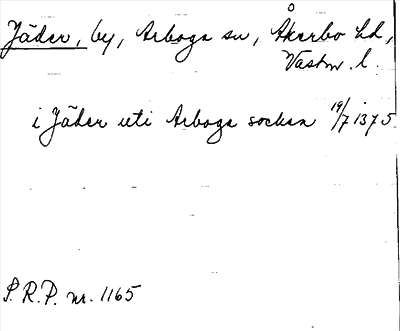 Jäder, by, Arboga sn, Åkerbo hd,
Västm. l.
i Jäder uti Arboga socken 19/7 1375
S.R.P. nr. 1165